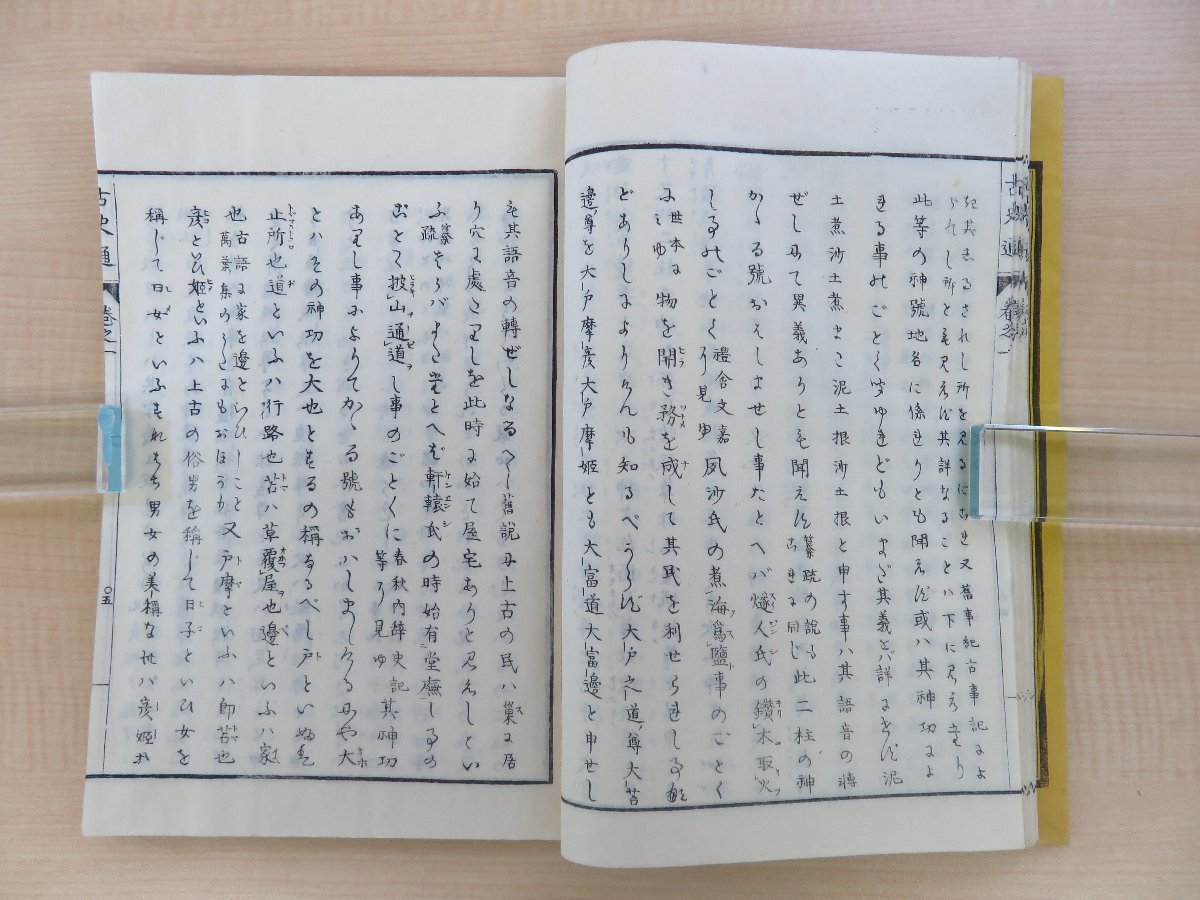 古史通
卷之一
れし所とも見えず其詳なることハ下に見えたり
此等の神號地名に係れりとも聞えず或ハ其神功によ
れる事のごとく聞ゆれどもいまだ其義をバ詳にせず泥
土煮沙土煮また泥土根沙土根と申す事ハ其語音の轉
ぜしにて異義ありとも聞えず纂疏の説も これに同じ此二柱の神
かゝる號おハしませし事たとヘバ燧人氏の鑽木取火
しるのごとく禮含文嘉 に見ゆ夙沙氏の煮海爲鹽事のごとく
世本に みゆ物を開き務を成して其民を利せられしる
どありしによりけんも知るべからず大戸之道尊大苫
邊尊を大戸摩彦大戸摩姬とも大富道大富邊と申せし
も其語音の轉ぜしなるべし舊説に上古の民ハ巢に居
り穴に處たりしを此時に始て屋宅ありと見えしとい
ふ纂 疏さらバたとへば軒轅氏の時始有堂廡しるの
おとく披山通道し事のごとくに春秋内辭史記 等に見ゆ其神功
ありし事によりてかゝる號もおハしましけるにや大
とハその神功を大也とするの稱なるべし戸といふハ
止所也道といふハ行路也苫ハ草覆屋也邊といふハ家
也古語に家を邊といひしこと 萬葉集のうたにもおほう又戸摩といふハ即苫也
彦とひ姬といふハ上古の俗男を稱じて日子といひ女を
稱じて日女といふすなハち男女の美稱なれバ彦姬
古史通
卷之一
〇五